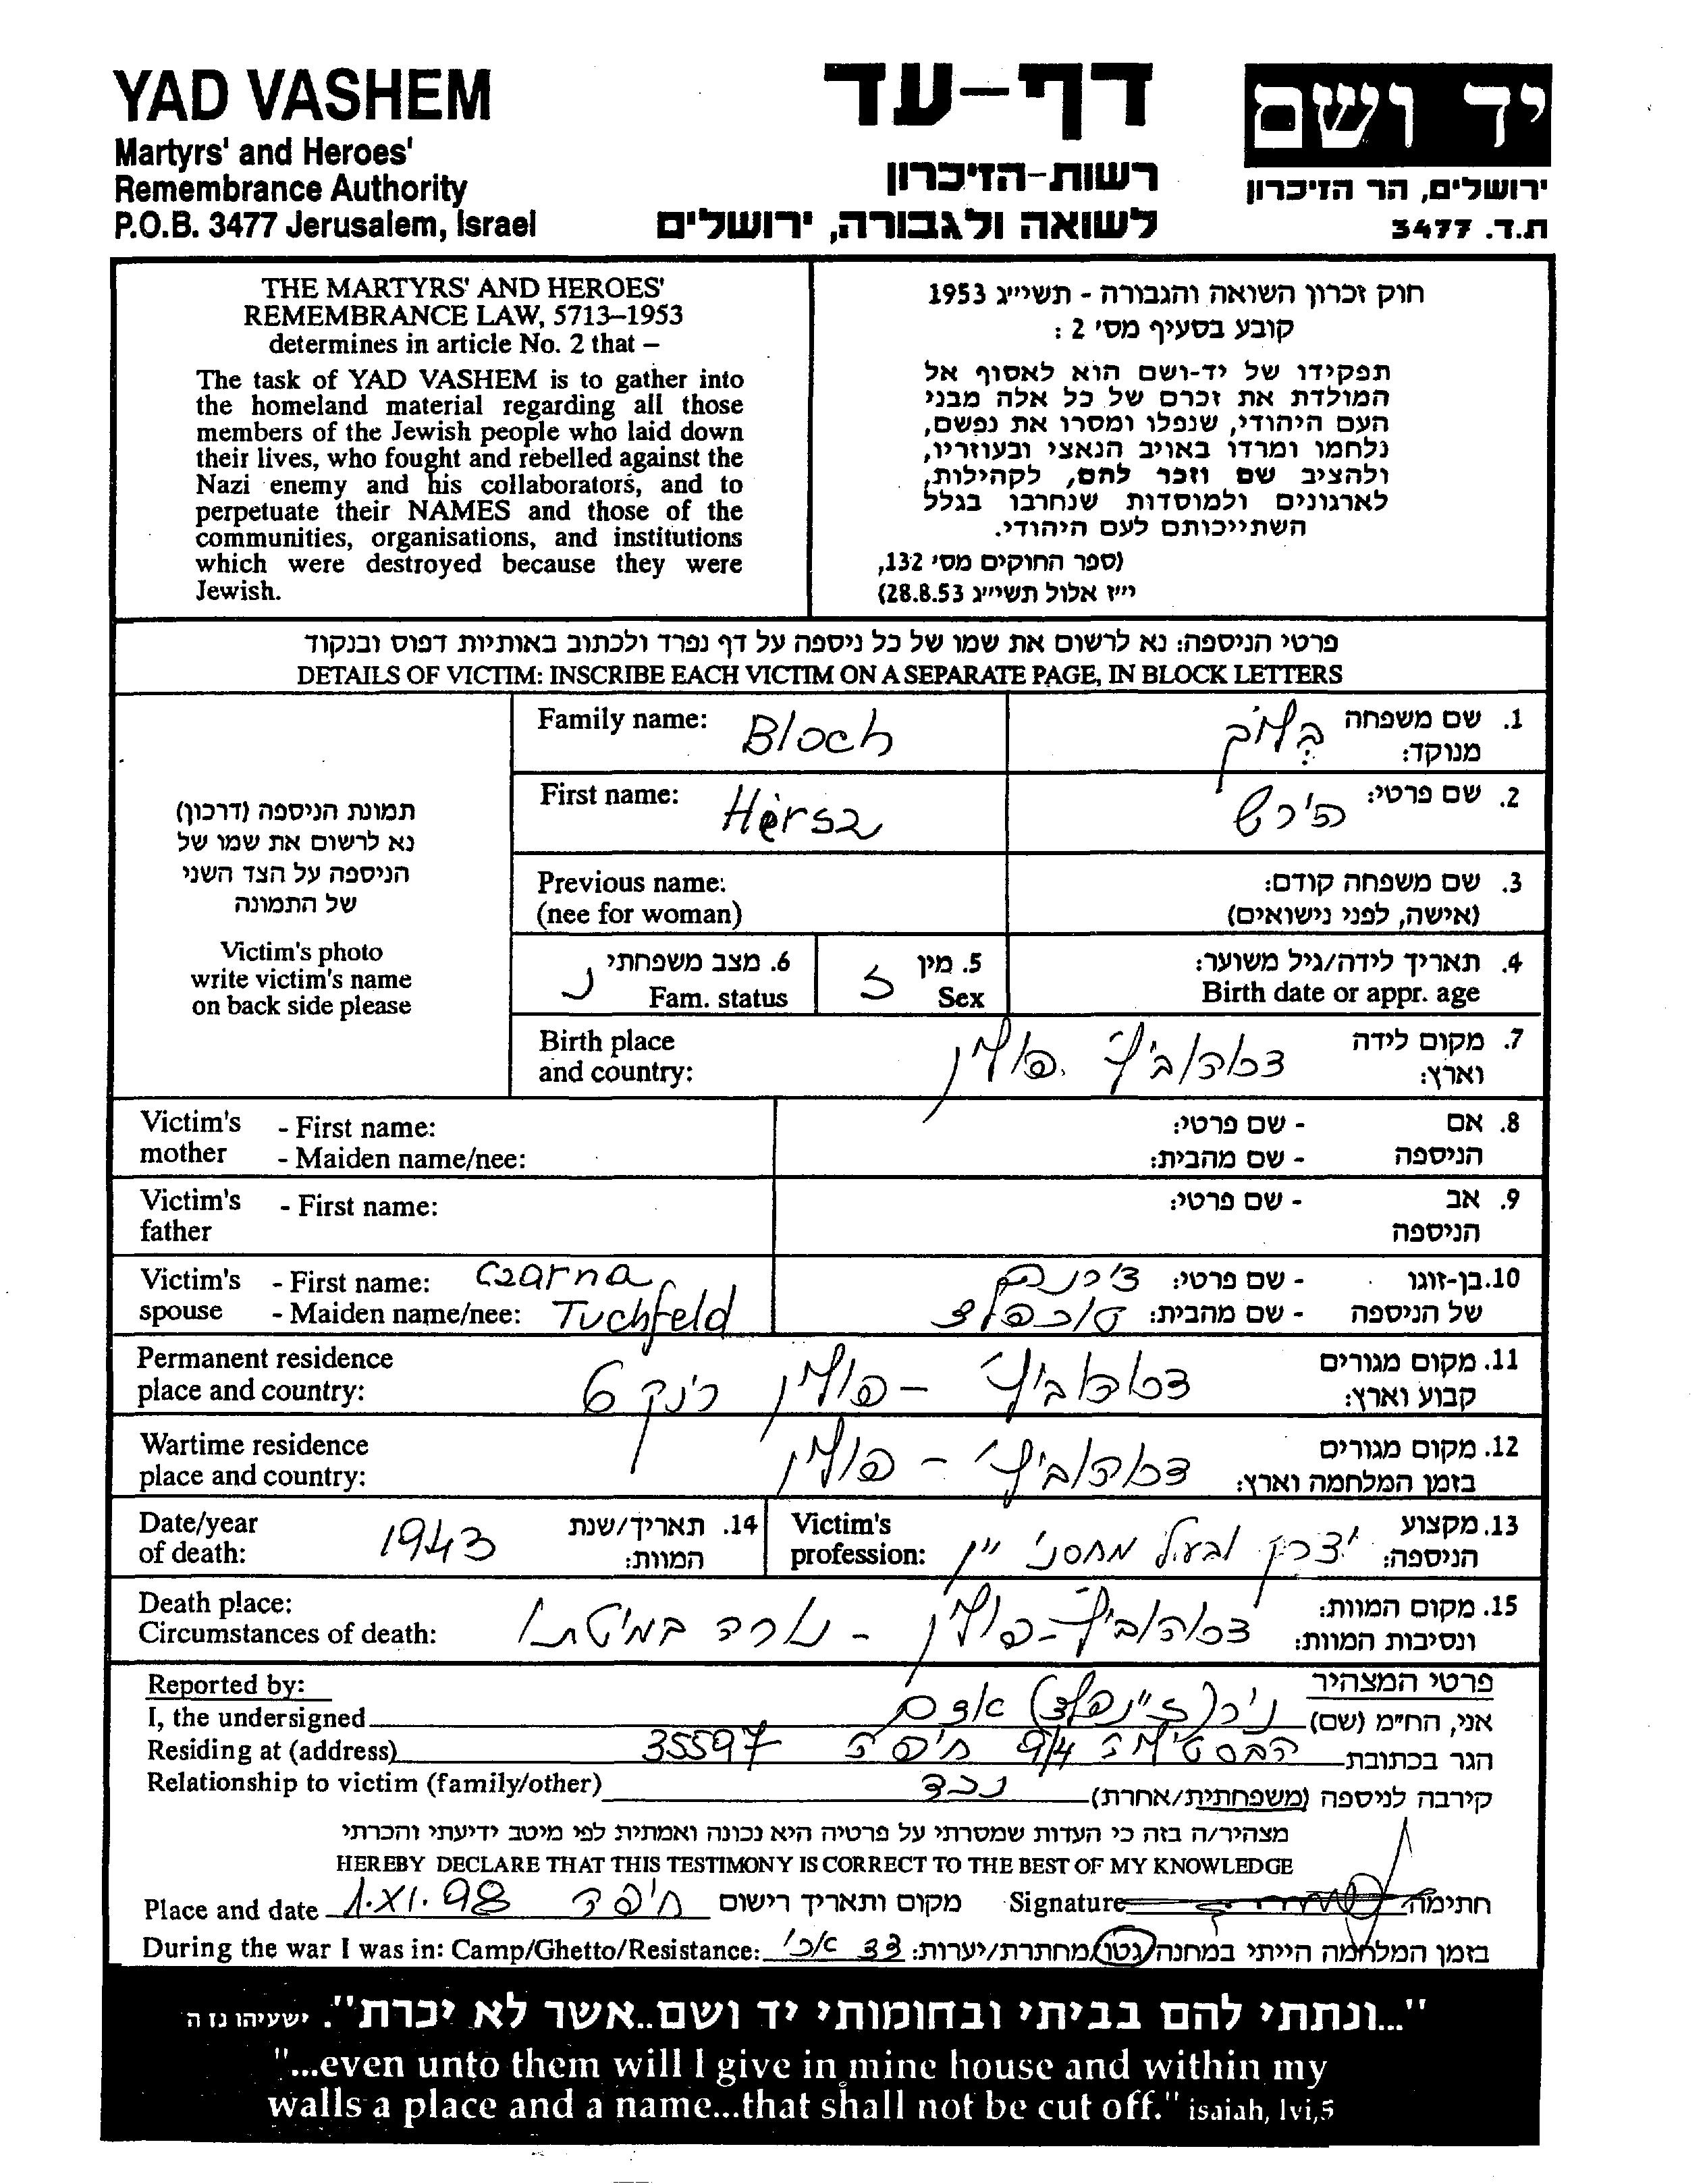 YAD VASHEM
Martyrs' and Heroes'
Remembrance Authority
P.O.B. 3477 Jerusalem, Israel
דף-עד
רשות-הזיכרון
לשואה ולגבורה, ירושלים
יד ושם
ירושלים, הר הזיכרון
ת.ד. 3477
THE MARTYRS' AND HEROES'
REMEMBRANCE LAW, 5713–1953
determines in article No. 2 that –
The task of YAD VASHEM is to gather into
the homeland material regarding all those
members of the Jewish people who laid down
their lives, who fought and rebelled against the
Nazi enemy and his collaborators, and to
perpetuate their NAMES and those of the
communities, organisations, and institutions
which were destroyed because they were
Jewish.
חוק זכרון השואה והגבורה - תשי״ג 1953
קובע בסעיף מס׳ 2 :
תפקידו של יד-ושם הוא לאסוף אל
המולדת את זכרם של כל אלה מבני
העם היהודי, שנפלו ומסרו את נפשם,
נלחמו ומרדו באויב הנאצי ובעוזריו,
ולהציב שם וזכר להם, לקהילות,
לארגונים ולמוסדות שנחרבו בגלל
השתייכותם לעם היהודי.
(ספר החוקים מס׳ 132,
י״ז אלול תשי״ג 28.8.53)
פרטי הניספה: נא לרשום את שמו של כל ניספה על דף נפרד ולכתוב באותיות דפוס ובנקוד
DETAILS OF VICTIM: INSCRIBE EACH VICTIM ON A SEPARATE PAGE, IN BLOCK LETTERS
תמונת הניספה (דרכון)
נא לרשום את שמו של
הניספה על הצד השני
של התמונה
Victim's photo
write victim's name
on back side please
Family name: Bloch
1. שם משפחה
מנוקד: בלוך
First name: Hersz
2. שם פרטי: הירש
Previous name:
(nee for woman)
3. שם משפחה קודם:
(אישה, לפני נישואים)
6. מצב משפחתי נ
Fam. status
5. מין ז
Sex
4. תאריך לידה/גיל משוער:
Birth date or appr. age
Birth place
and country:
7. מקום לידה
וארץ: דרוהוביץ׳ פולין
Victim's mother - First name:
- Maiden name/nee:
8. אם הניספה - שם פרטי:
- שם מהבית:
Victim's father - First name:
9. אב הניספה - שם פרטי:
Victim's spouse - First name: Czarna
- Maiden name/nee: Tuchfeld
10. בן-זוגו של הניספה - שם פרטי: צ׳רנה
- שם מהבית: טוכפלד
Permanent residence
place and country:
11. מקום מגורים
קבוע וארץ: דרוהוביץ׳ - פולין רינק 6
Wartime residence
place and country:
12. מקום מגורים
בזמן המלחמה וארץ: דרוהוביץ׳ - פולין
Date/year
of death: 1943
14. תאריך/שנת
המוות:
Victim's
profession:
13. מקצוע
הניספה: יצרן ובעל מחסני יין
Death place:
Circumstances of death:
15. מקום המוות:
ונסיבות המוות: דרוהוביץ׳ - פולין - נורה במיטתו
Reported by:
פרטי המצהיר
I, the undersigned
אני, החי״מ (שם) ניר (זיינפלד) אדם
Residing at (address)
הגר בכתובת 9/4 חיפה 35597
Relationship to victim (family/other)
קירבה לניספה (משפחתית/אחרת) נכד
מצהיר/ה בזה כי העדות שמסרתי על פרטיה היא נכונה ואמתית לפי מיטב ידיעתי והכרתי
HEREBY DECLARE THAT THIS TESTIMONY IS CORRECT TO THE BEST OF MY KNOWLEDGE
Place and date 1.XI.98 חיפה מקום ותאריך רישום Signature חתימה
During the war I was in: Camp/Ghetto/Resistance:
בזמן המלחמה הייתי במחנה/גטו/מחתרת/יערות:
"...ונתתי להם בביתי ובחומותי יד ושם..אשר לא יכרת". ישעיהו נו ה
"...even unto them will I give in mine house and within my
walls a place and a name...that shall not be cut off." isaiah, lvi,5